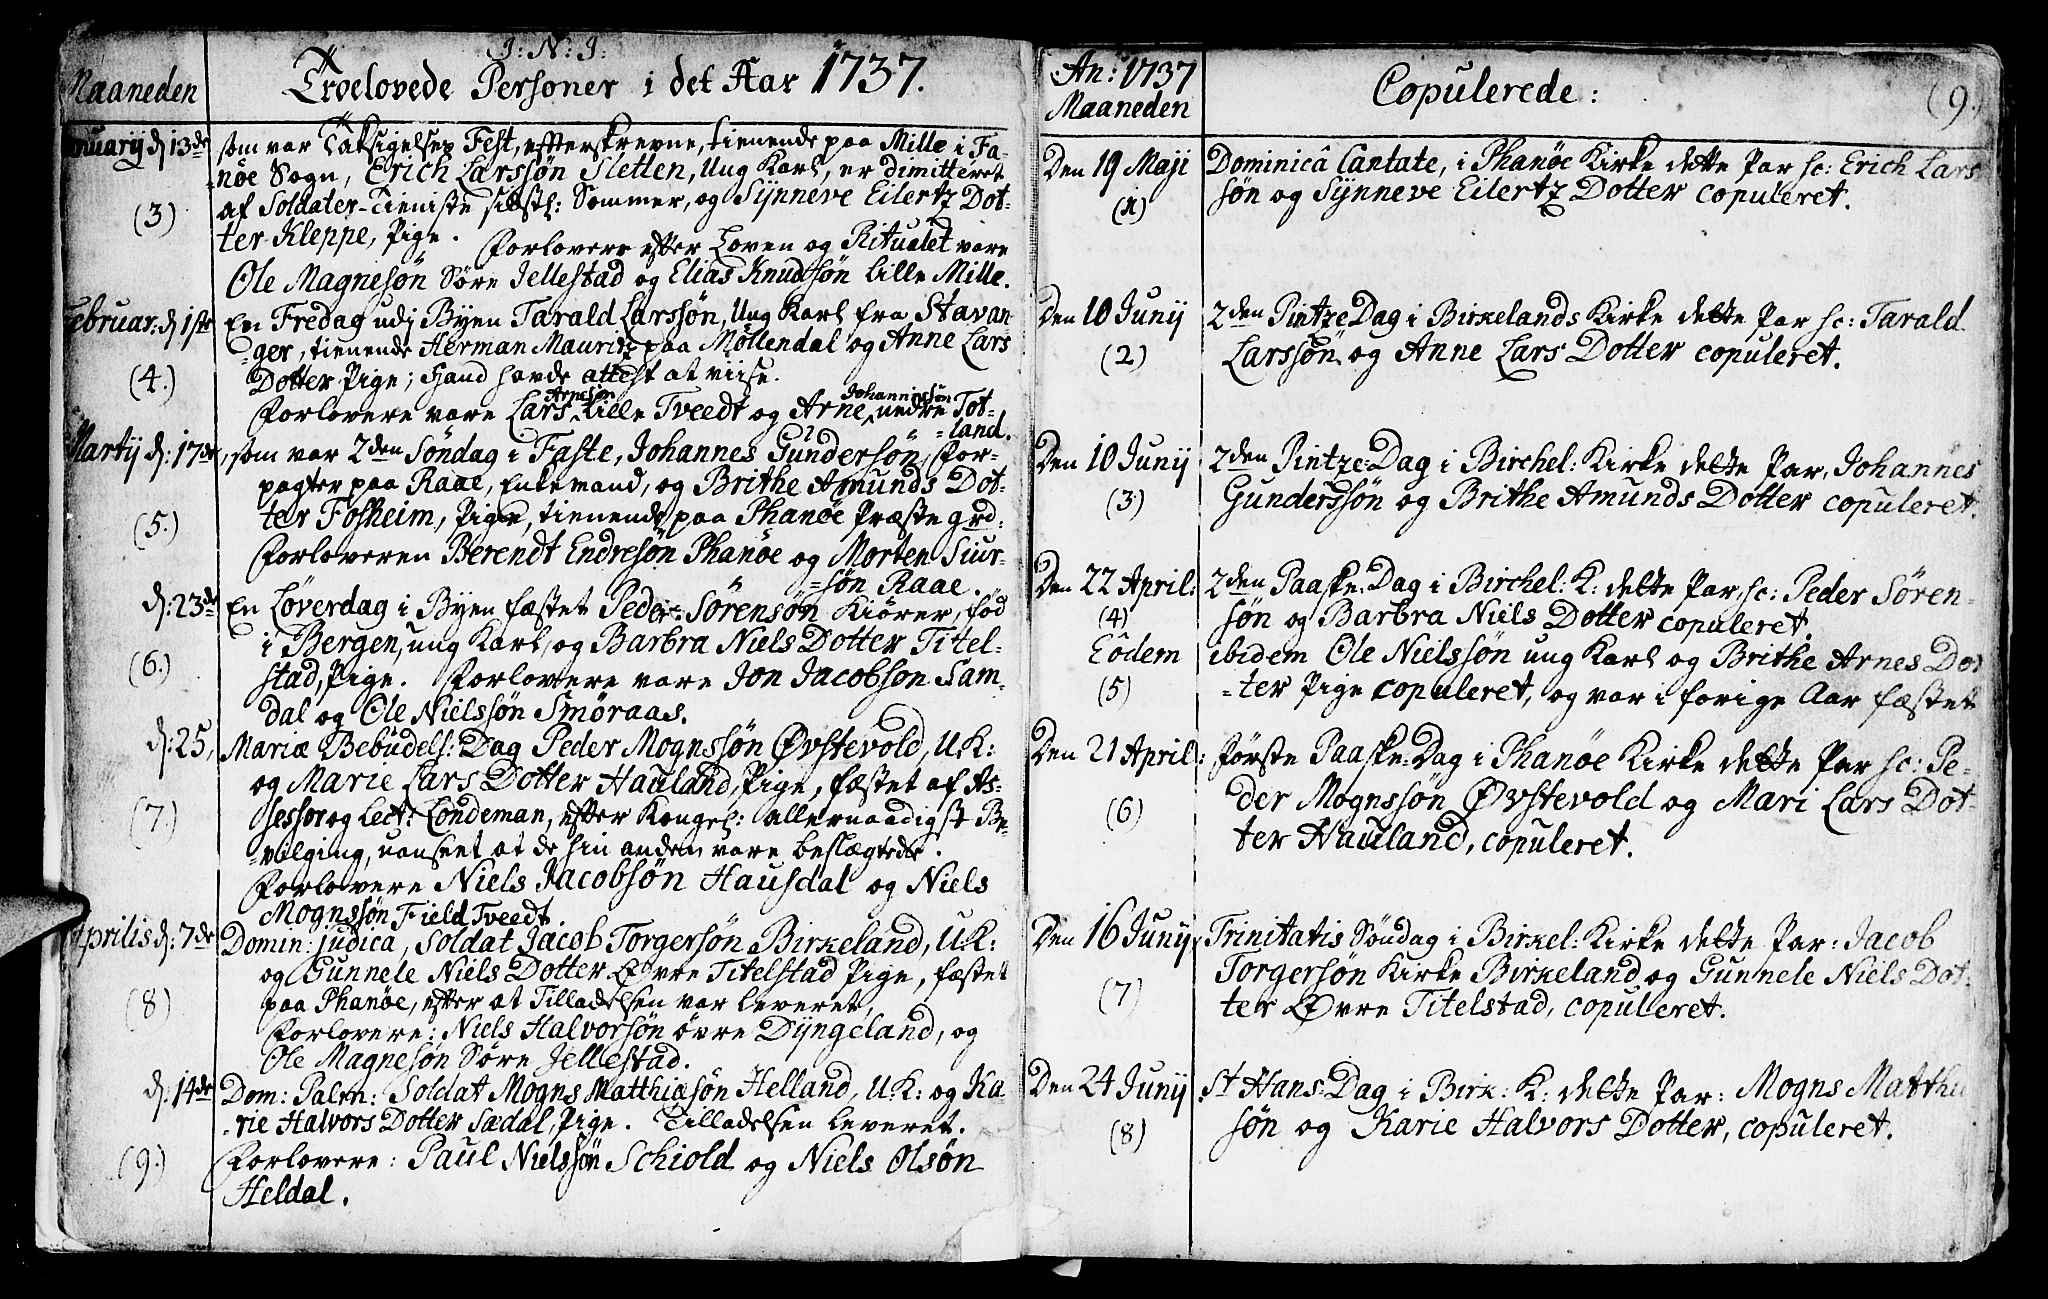 J: N: J:
Maaneden
Troelovede Personer i det Aar 1737.
nuarij d: 13de
som var Taksigelses Fest, effterskrevne, tienende paa Mille i Fa-
nöe Sogn, Erich Larssøn Sletten, Ung Karl, er dimitteret
af Soldater-Tieniste sidstl: Sommer, og Sÿnneve Eilertz Dot-
(3)
ter Kleppe, Pige. Forlovere effter Loven og Ritualet vare
Ole Magnesøn Søre Jellestad og Elias Knudssøn lille Mille.
Februar. d: 1ste
En Fredag udj Byen Tarald Larssøn, Ung Karl fra Stavan-
ger, tienende Herman Mauritz paa Møllendal og Anne Lars
(4.)
Dotter Pige; Hand hafde attest at viise.
Forlovere vare Lars Arnesøn Lille Tveedt og Arne Johannissøn nedre Tot-
land.
Martij d: 17de
, som var 2den Søndag i Faste, Johannes Gundersøn, For-
pagter paa Raae, Enkemand, og Brithe Amunds Dot-
(5.)
ter Fosheim, Pige, tienende paa Phanöe Præstegrd:
Forloveren Berendt Endresøn Phanöe og Morten Siur-
søn Raae.
d: 23de
En Løverdag i Byen fæstet Peder Sørensøn Kiører, fød
i Bergen, ung Karl, og Barbra Niels Dotter Titel-
(6.)
stad, Pige. Forlovere vare Jon Jacobsøn Sam-
dal og Ole Nielssøn Smøraas.
d: 25,
Mariæ Bebudels: Dag Peder Mognssøn Øvstevold, U.K:
og Marie Lars Dotter Hauland, Pige, fæstet af As-
(7.)
sessor og Lect: Londeman, effter Kongel: allernaadigst Be-
vilging, uanseet at de hin anden vare beslægtede.
Forlovere Niels Jacobsøn Hausdal og Niels
Mognssøn Field Tveedt.
Aprilis d: 7de
Domin: judica, Soldat Jacob Torgersøn Birkeland, U.K:
og Gunnele Niels Dotter Øvre Titelstad Pige, fæstet
(8)
paa Phanöe, effter at Tilladelsen var leveret,
Forlovere: Niels Halvorsøn øvre Dÿngeland, og
Ole Magnesøn Søre Jellestad.
d: 14de
Dom: Palm: Soldat Mogns Matthiasøn Helland, U.K: og Ka-
rie Halvors Dotter Sædal, Pige. Tilladelsen leveret.
(9.)
Forlovere: Paul Nielssøn Schiold og Niels Olsøn
Heldal.
An: 1737
Maaneden
Copulerede:
(9.)
Den 19 Maji
Dominicâ Cantate, i Phanöe Kirke dette Par sc: Erich Lars
(1)
søn og Sÿnneve Eilertz Dotter copuleret.
Den 10 Junij
2den PintzeDag i Birkelands Kirke dette Par sc: Tarald
(2)
Larssøn og Anne Lars Dotter copuleret.
Den 10 Junij
2den Pintze-Dag i Birchel: Kirke dette Par, Johannes
(3)
Gunderssøn og Brithe Amunds Dotter copuleret.
Den 22 April:
2den Paaske-Dag i Birchel: K: dette Par, sc: Peder Sören-
(4)
søn og Barbra Niels Dotter copuleret.
Eôdem
ibidem Ole Nielssøn ung Karl og Brithe Arnes Dot
(5)
ter Pige copuleret, og var i forige Aar fæstet
Den 21 April:
første Paaske-Dag i Phanöe Kirke dette Par sc: Pe-
(6)
der Mognssøn Øvstevold og Mari Lars Dot-
ter Hauland, copuleret.
Den 16 Junij
Trinitatis Søndag i Birkel: Kirke dette Par: Jacob
(7)
Torgersøn Kirke Birkeland og Gunnele Niels Dot-
ter Øvre Titelstad, copuleret.
Den 24 Junij
St Hans-Dag i Birk: K: dette Par: Mogns Matthi
(8)
søn og Karie Halvors Dotter, copuleret.